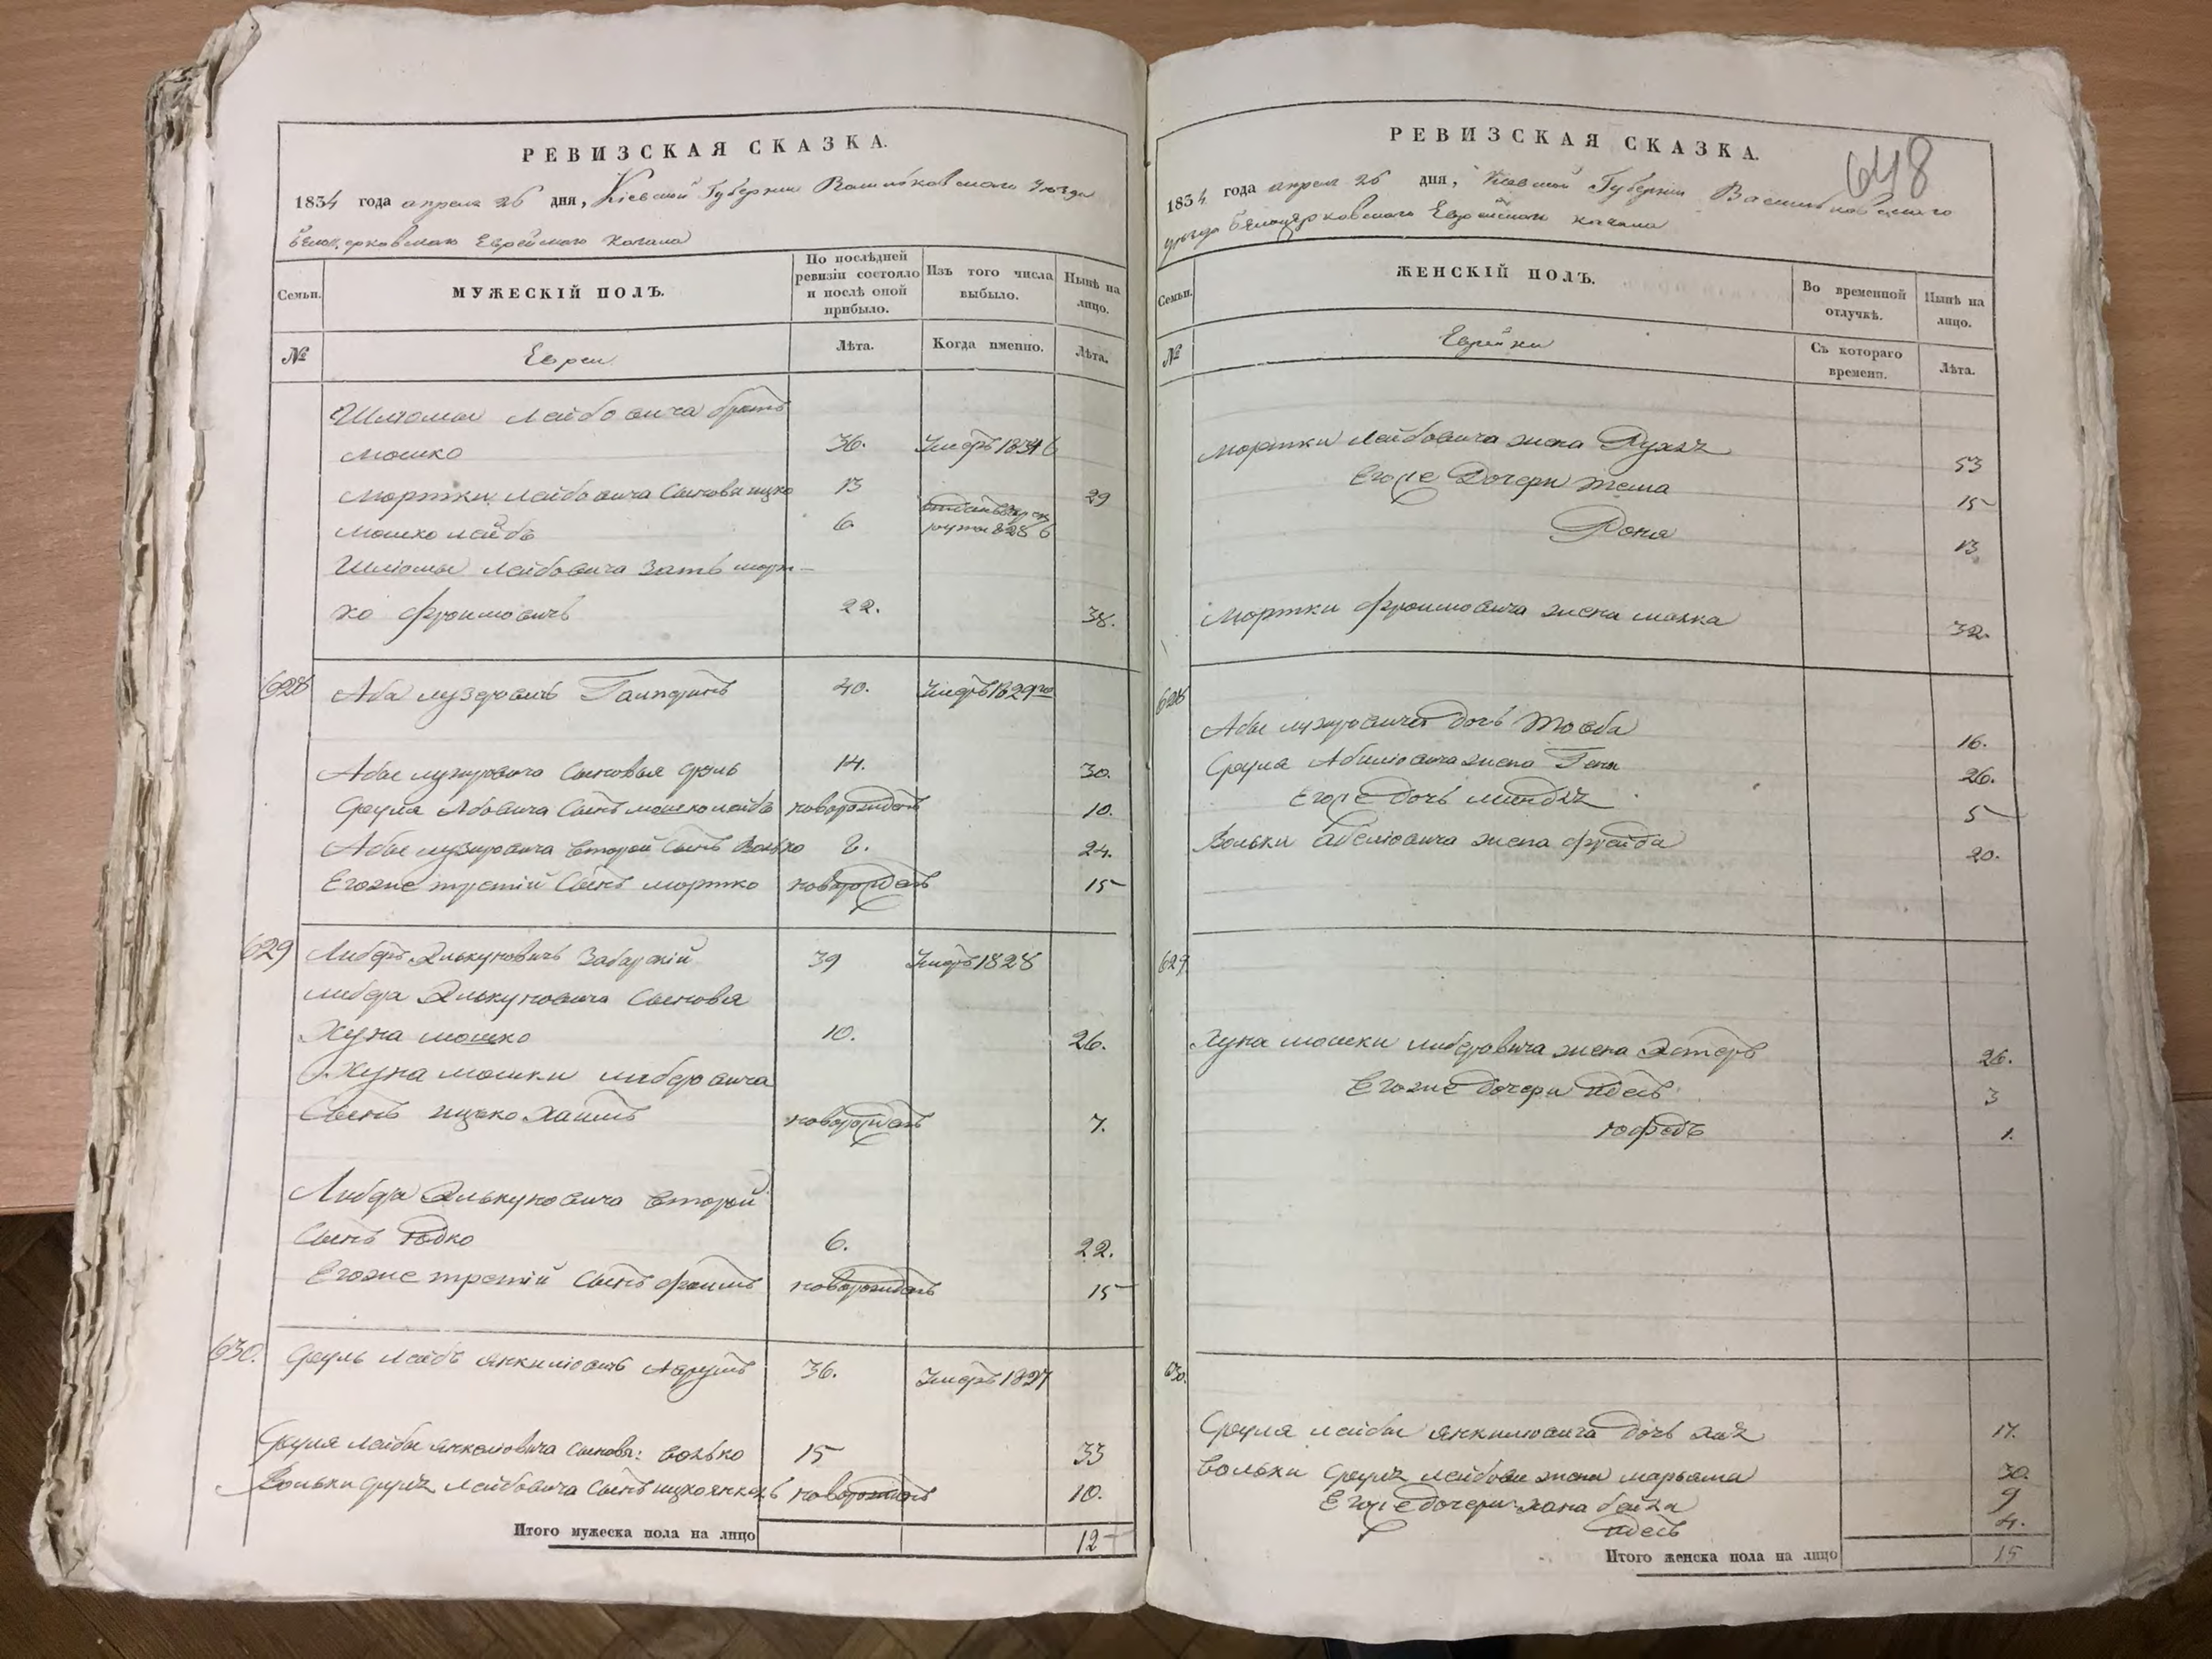 РЕВИЗСКАЯ СКАЗКА.
1834 года апреля 26 дня, Кіевской Губерніи Васильковскаго Уезда
Белоцерковскаго Еврейскаго Кагала
Семьи.
МУЖЕСКІЙ ПОЛЪ.
По послѣдней ревизіи состояло и послѣ оной прибыло.
Изъ того числа выбыло.
Нынѣ на лицо.
№
Евреи
Лѣта.
Когда именно.
Лѣта.
Шлiомы Лейбовича братъ
Мошко 36. Умеръ 1831
Мортки Лейбовича сыновья Ицко 13 29
Мошко Лейбъ 6. 1828
Шлiомы Лейбовича зять Морт-
ко Фроимовичъ 22. 38.
628 Аба Лузеровичъ 40. Умеръ 1829го
Абы Лузеровича сыновья Сруль 14. 30.
Сруля Абовича сынъ Мошко Лейбъ новорожденъ 10.
Абы Лузеровича второй сынъ Волько 8. 24.
Егоже третій сынъ Мортко новорожденъ 15
629 Либеръ Элькуновичъ Забарскій 39 Умеръ 1828
Либера Элькуновича сыновья
Хуна Мошко 10. 26.
Хуна Мошки Либеровича
сынъ Ицко Хаимъ новорожденъ 7.
Либера Элькуновича второй
сынъ Юдко 6. 22.
Егоже третій сынъ Фроимъ новорожденъ 15
630. Сруль Лейбъ Янкиліовичъ 36. Умеръ 1827
Сруля Лейбы Янкеліовича сыновья: Волько 15 33
Вольки Сруля Лейбовича сынъ Ицко Янкель новорожденъ 10.
Итого мужеска пола на лицо 12
РЕВИЗСКАЯ СКАЗКА.
648
1834 года апреля 26 дня, Кіевской Губерніи Васильковскаго
уезда Белоцерковскаго Еврейскаго кагала
Семьи.
ЖЕНСКІЙ ПОЛЪ.
Во временной отлучкѣ.
Нынѣ на лицо.
№
Еврейки
Съ котораго времени.
Лѣта.
Мортки Лейбовича жена Рухля 53
Егоже дочери 15
Роня 13
Мортки Фроимовича жена Малка 32.
628
Абы Лузеровича дочь Тоъба 16.
Сруля Абиліовича жена Геня 26.
Егоже дочь Миндля 5
Вольки Абеліовича жена Фрейда 20.
629
Хуна Мошки Либеровича жена Эстеръ 26.
Егоже дочери Идесъ 3
1.
630.
Сруля Лейбы Янкиліовича дочь Хая 17.
Вольки Сруля Лейбови жена Марьяма 30.
Егоже дочери Хана Бейла 9
Идесъ 4.
Итого женска пола на лицо 15